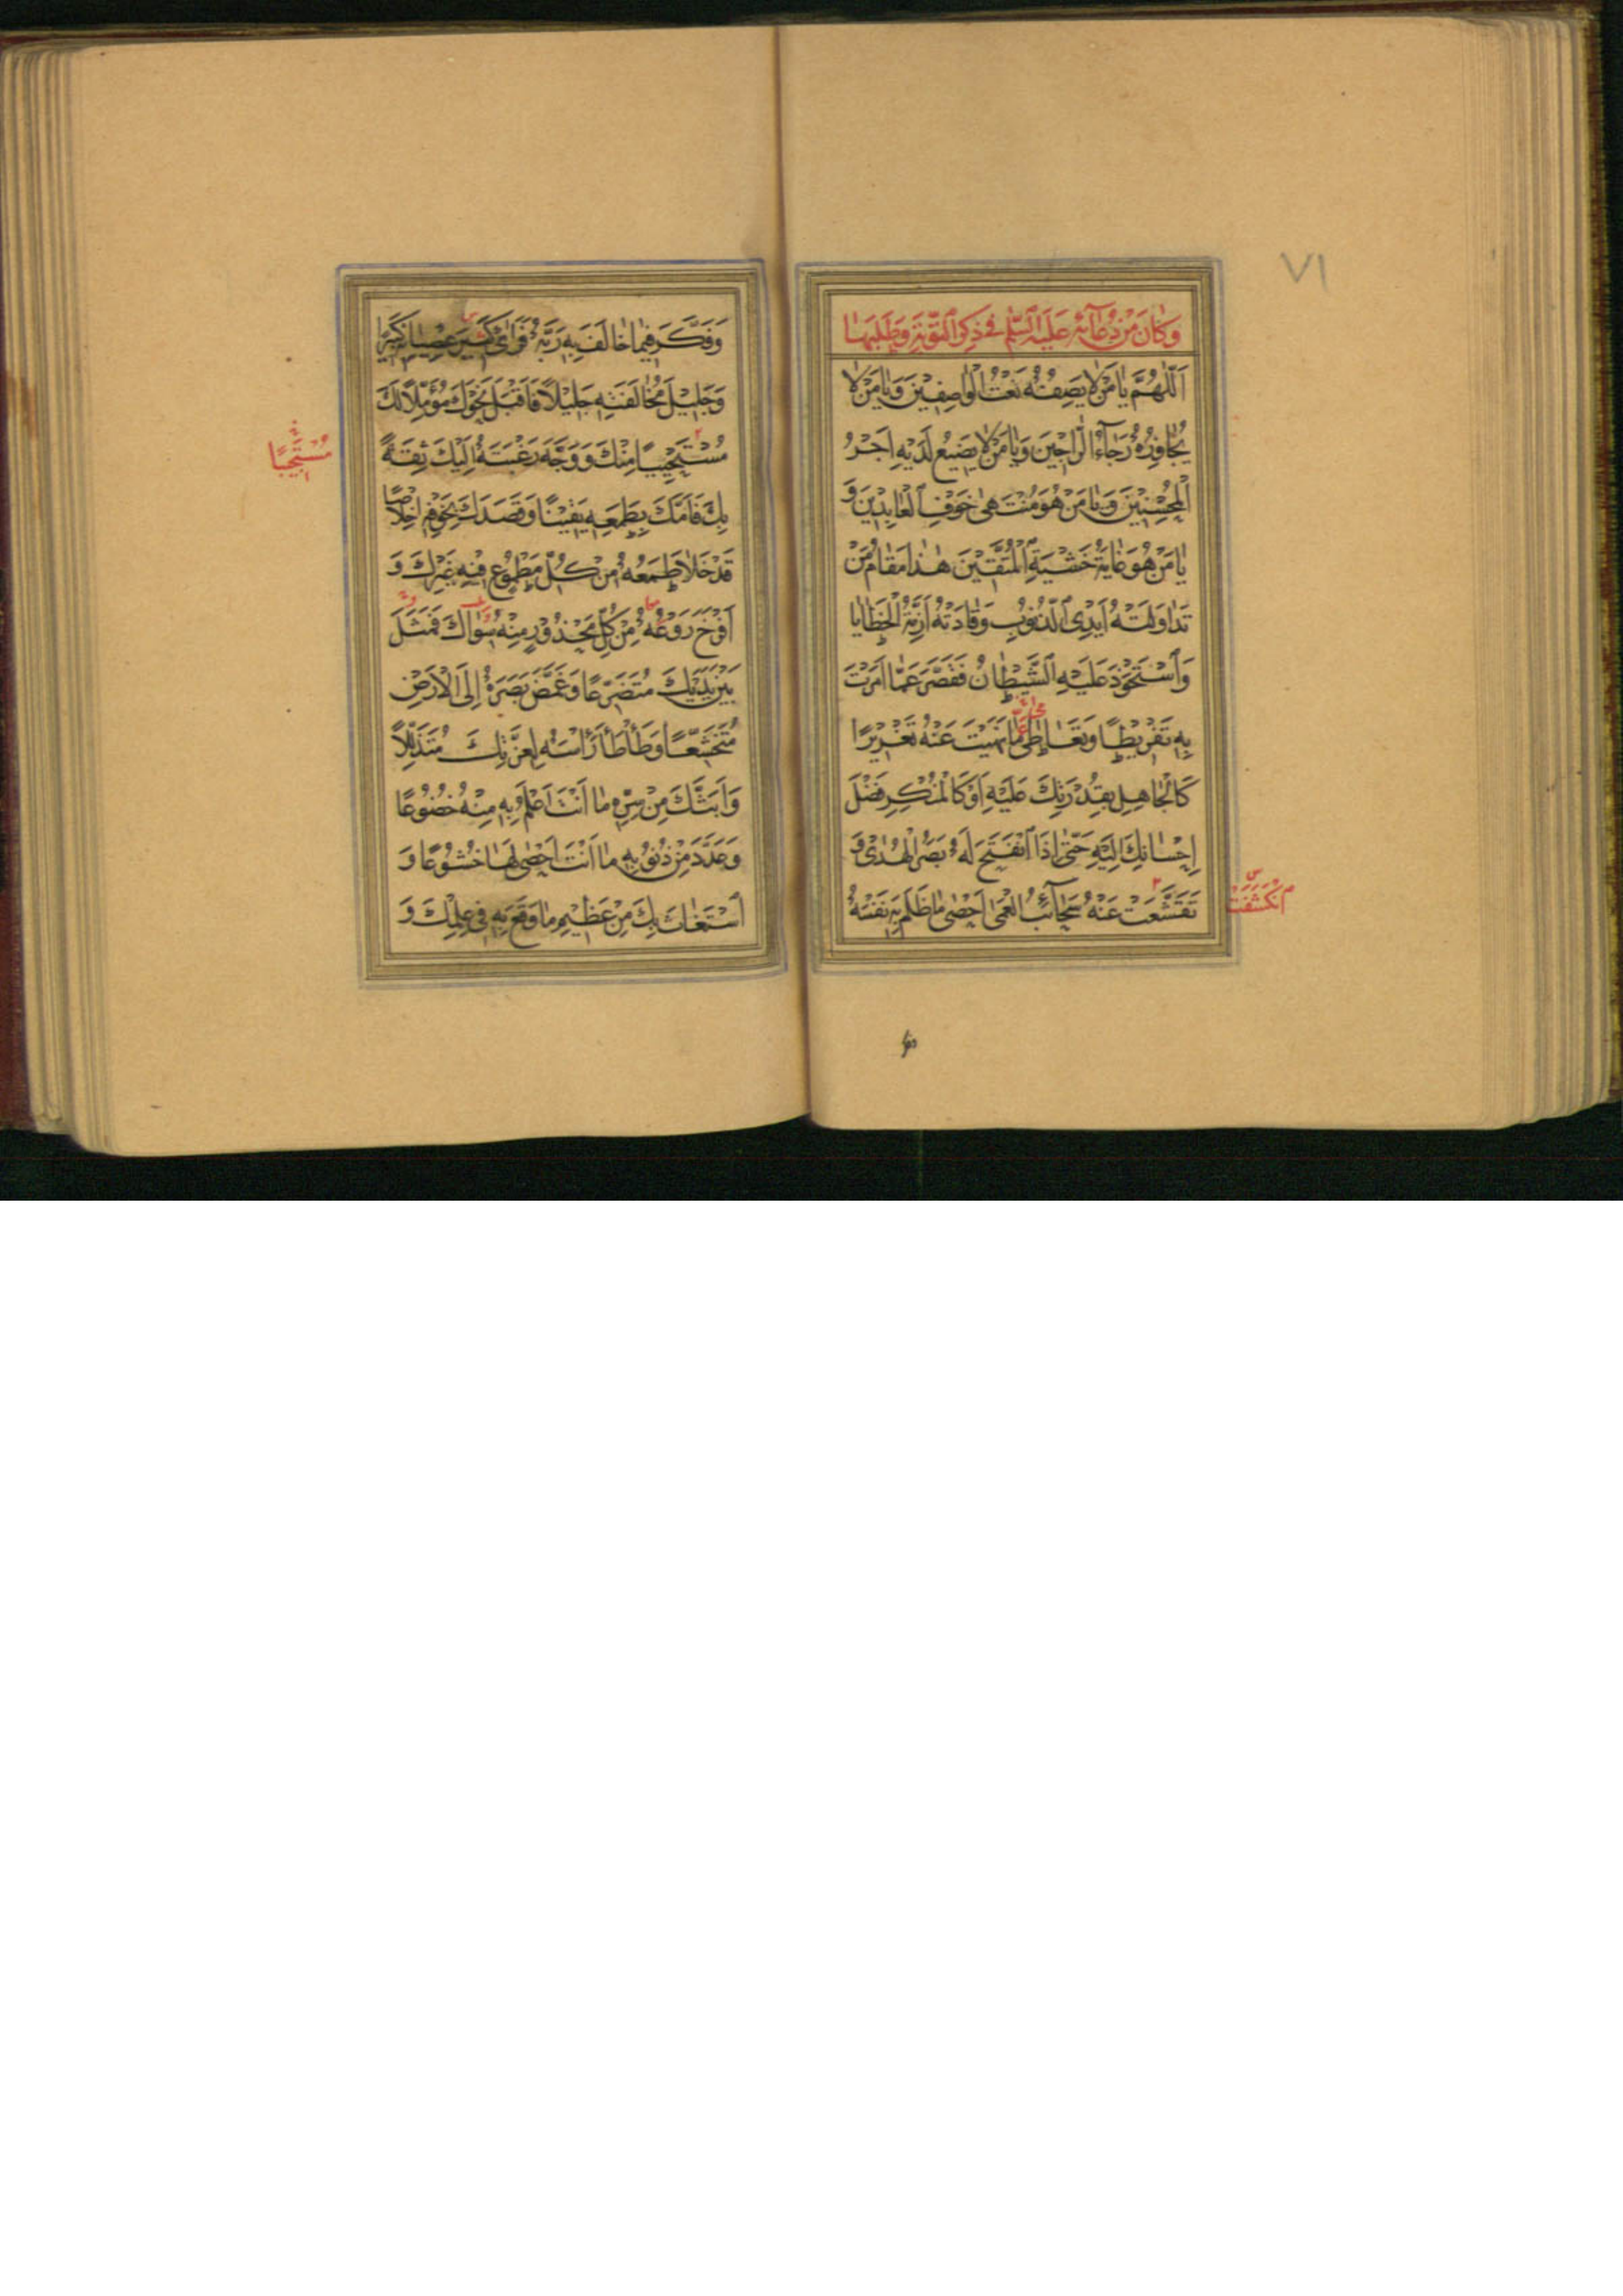 ٧١
وَكَانَ مِنْ دُعَائِهِ عَلَيْهِ السَّلَمُ فِي ذِكْرِ التَّوْبَةِ وَطَلَبِهَا
اَللّٰهُمَّ يَا مَنْ لَا يَصِفُهُ نَعْتُ الْوَاصِفِيْنَ وَيَا مَنْ لَا
يُجَاوِزُهُ رَجَاءُ الرَّاجِيْنَ وَيَا مَنْ لَا يَضِيْعُ لَدَيْهِ اَجْرُ
الْمُحْسِنِيْنَ وَيَا مَنْ هُوَ مُنْتَهٰى خَوْفِ الْعَابِدِيْنَ وَ
يَا مَنْ هُوَ غَايَةُ خَشْيَةِ الْمُتَّقِيْنَ هٰذَا مَقَامُ مَنْ
تَدَاوَلَتْهُ اَيْدِى الذُّنُوْبِ وَقَادَتْهُ اَزِمَّةُ الْخَطَايَا
وَاسْتَحْوَذَ عَلَيْهِ الشَّيْطَانُ فَقَصَّرَ عَمَّا اَمَرْتَ
بِهِ تَفْرِيْطًا وَتَعَاطٰى مَا نَهَيْتَ عَنْهُ تَغْرِيْرًا
كَالْجَاهِلِ بِقُدْرَتِكَ عَلَيْهِ اَوْ كَالْمُنْكِرِ فَضْلَ
اِحْسَانِكَ اِلَيْهِ حَتّٰى اِذَا انْفَتَحَ لَهُ بَصَرُ الْهُدٰى وَ
تَقَشَّعَتْ عَنْهُ سَحَائِبُ الْعَمٰى اَحْصٰى مَا ظَلَمَ بِهِ نَفْسَهُ
انْكَشَفَتْ
وَفَكَّرَ فِيْمَا خَالَفَ بِهِ رَبَّهُ فَرَاٰى كَثِيْرَ عِصْيَانِهِ كَثِيْرًا
وَجَلِيْلَ مُخَالَفَتِهِ جَلِيْلًا فَاَقْبَلَ نَحْوَكَ مُؤَمِّلًا لَكَ
مُسْتَحْيِيًا مِنْكَ وَوَجَّهَ رَغْبَتَهُ اِلَيْكَ ثِقَةً
بِكَ فَاَمَّكَ بِطَمَعِهِ يَقِيْنًا وَقَصَدَكَ بِخَوْفِهِ اِخْلَاصًا
قَدْ خَلَا طَمَعُهُ مِنْ كُلِّ مَطْمُوْعٍ فِيْهِ غَيْرِكَ وَ
اَفْرَخَ رَوْعُهُ مِنْ كُلِّ مَحْذُوْرٍ مِنْهُ سِوَاكَ فَمَثَلَ
بَيْنَ يَدَيْكَ مُتَضَرِّعًا وَغَمَّضَ بَصَرَهُ اِلَى الْاَرْضِ
مُتَخَشِّعًا وَطَاْطَاَ رَاْسَهُ لِعِزَّتِكَ مُتَذَلِّلًا
وَاَبَثَّكَ مِنْ سِرِّهِ مَا اَنْتَ اَعْلَمُ بِهِ مِنْهُ خُضُوْعًا
وَعَدَّدَ مِنْ ذُنُوْبِهِ مَا اَنْتَ اَحْصٰى لَهَا خُشُوْعًا وَ
اسْتَغَاثَ بِكَ مِنْ عَظِيْمِ مَا وَقَعَ بِهِ فِيْ عِلْمِكَ وَ